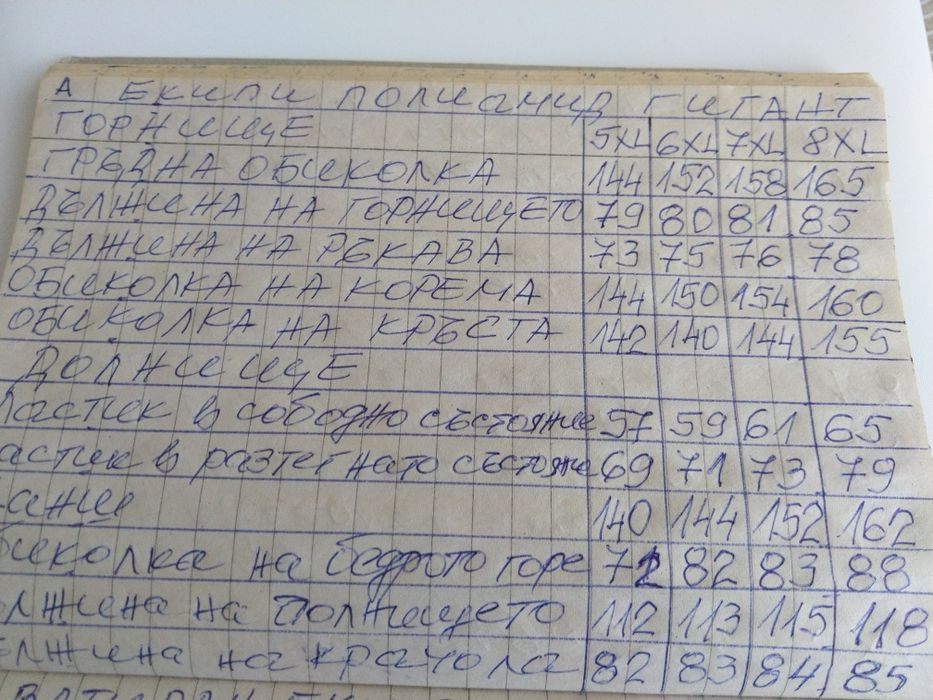 А ЕКИПИ ПОЛИАМИД ГИГАНТ
ГОРНИЩЕ 5XL 6XL 7XL 8XL
ГРЪДНА ОБИКОЛКА 144 152 158 165
ДЪЛЖИНА НА ГОРНИЩЕТО 79 80 81 85
ДЪЛЖИНА НА РЪКАВА 73 75 76 78
ОБИКОЛКА НА КОРЕМА 144 150 154 160
ОБИКОЛКА НА КРЪСТА 142 140 144 155
ДОЛНИЩЕ
ластик в сободно състояние 57 59 61 65
астик в разтегнато състояне 69 71 73 79
ханш 140 144 152 162
биколка на бедрото горе 72 82 83 88
лжина на долнището 112 113 115 118
ължина на крачола 82 83 84 85